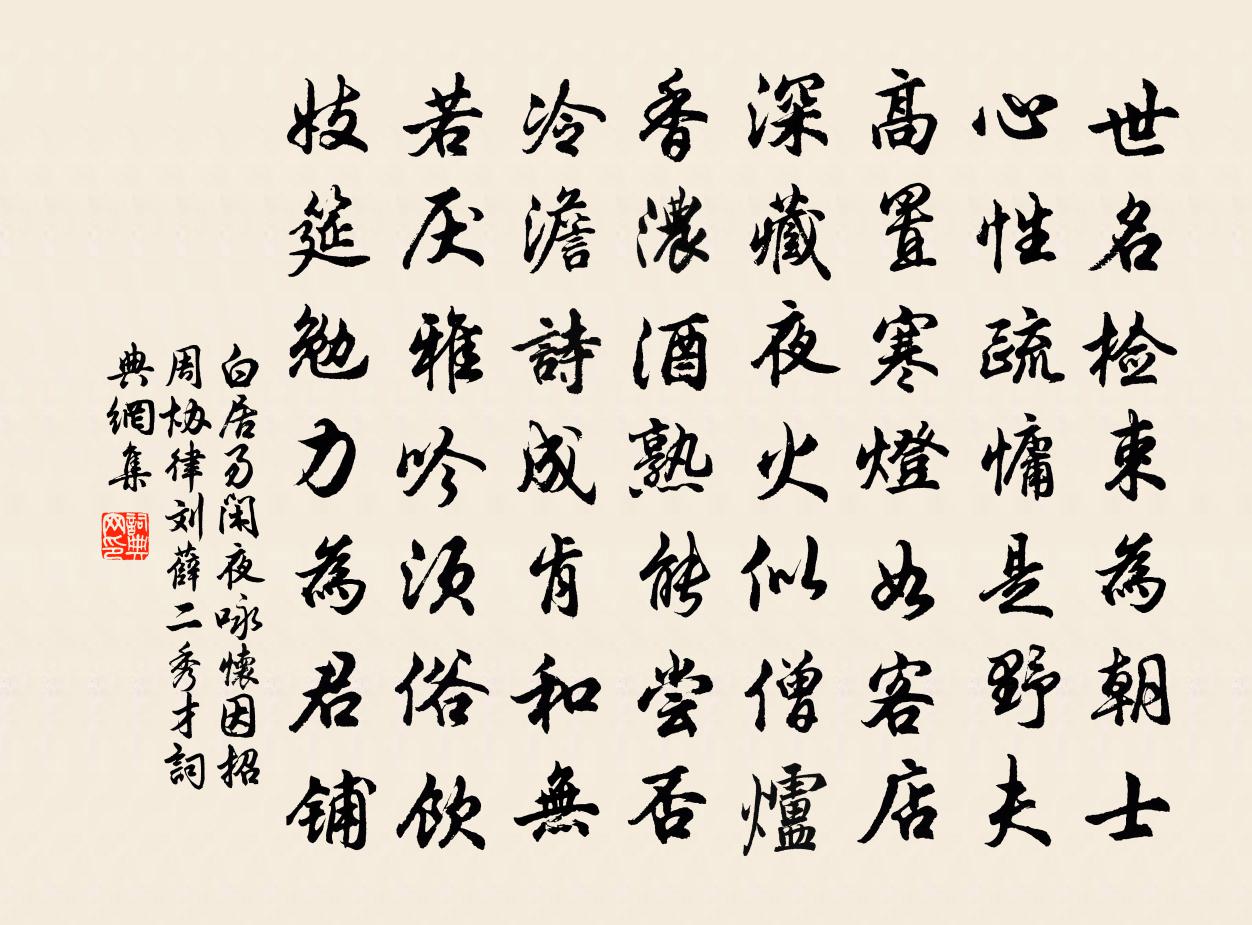 世名检束為朝士
心性疏慵是野夫
高置寒燈如客店
深藏夜火似僧爐
香濃酒熟能尝否
冷澹詩成肯和無
若厌雅吟须俗飲
妓筵勉力為君铺
白居易闲夜咏懷因招
周协律刘薛二秀才詞
典網集
詞典网印